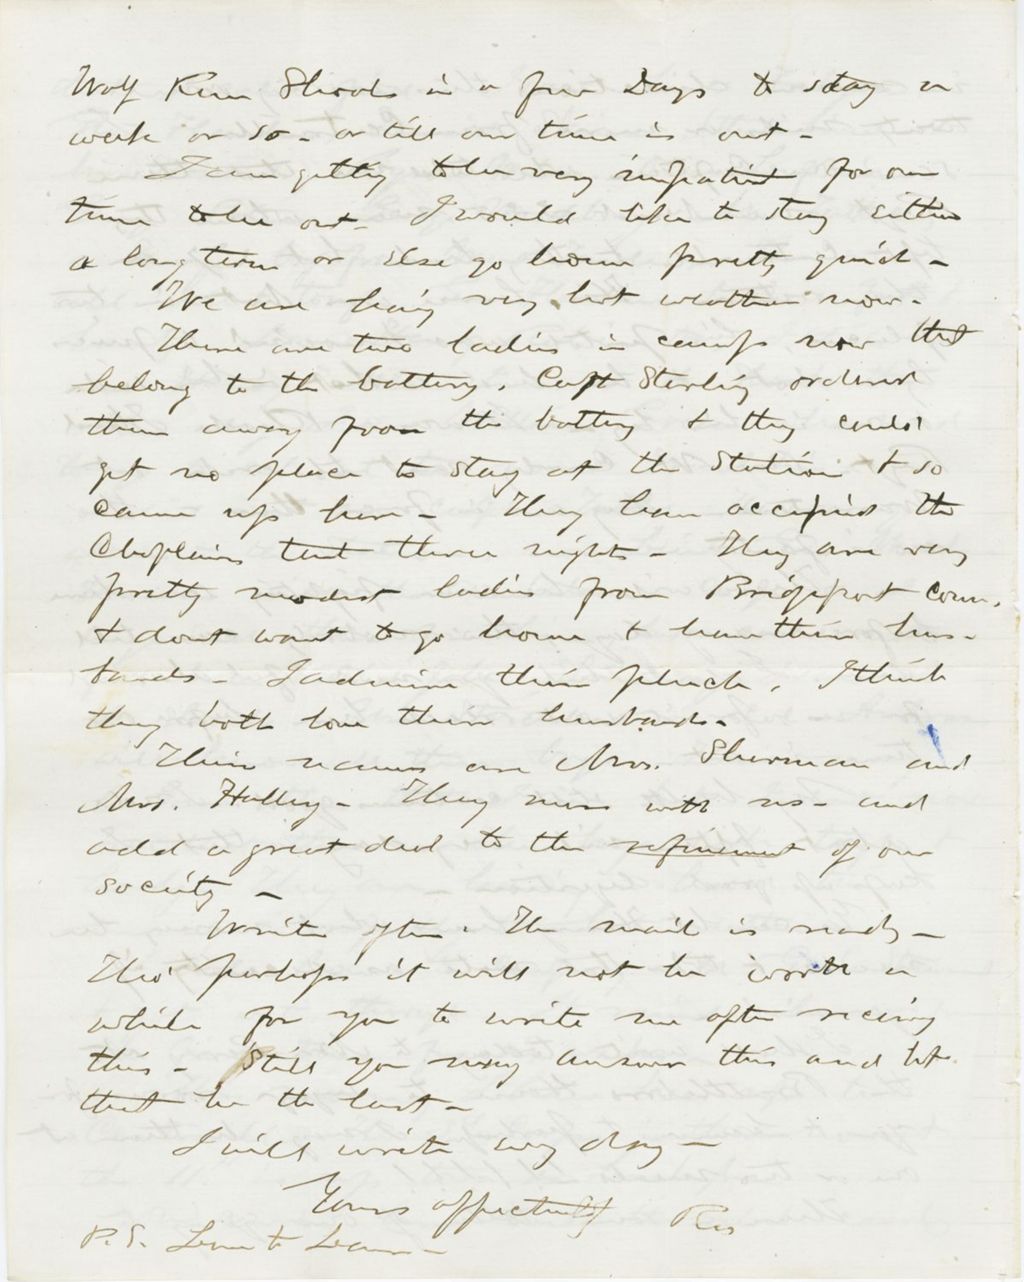 Wolf Run Shoals in a few Days to stay a
week or so - or till our time is out -
I am getting to be very impatient for our
time to be out - I would like to stay either
a long term or else go home pretty quick -
We are having very hot weather now -
There are two ladies in camp now that
belong to the battery. Capt Sterling ordered
them away from the battery & they could
get no place to stay at the Station & so
came up here - They have occupied the
Chaplains tent three nights - They are very
pretty modest ladies from Bridgeport Conn.
& dont want to go home & leave their hus-
bands - I admire their pluck. I think
they both love their husbands -
Their names are Mrs. Sherman and
Mrs. Halley - They mess with us - and
add a great deal to the refinement of our
society -
Write often. The mail is ready -
Tho' perhaps it will not be worth a
while for you to write me after receiving
this - Still you may answer this and let
that be the last -
I will write every day -
Yours affectionately
P.S. Love to